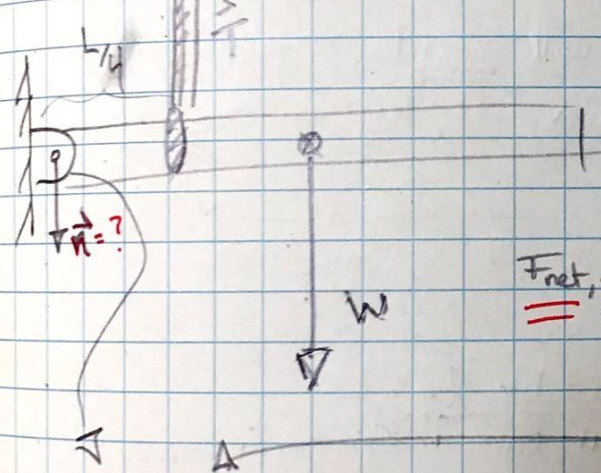 L/4
T
n = ?
W
Fnet,